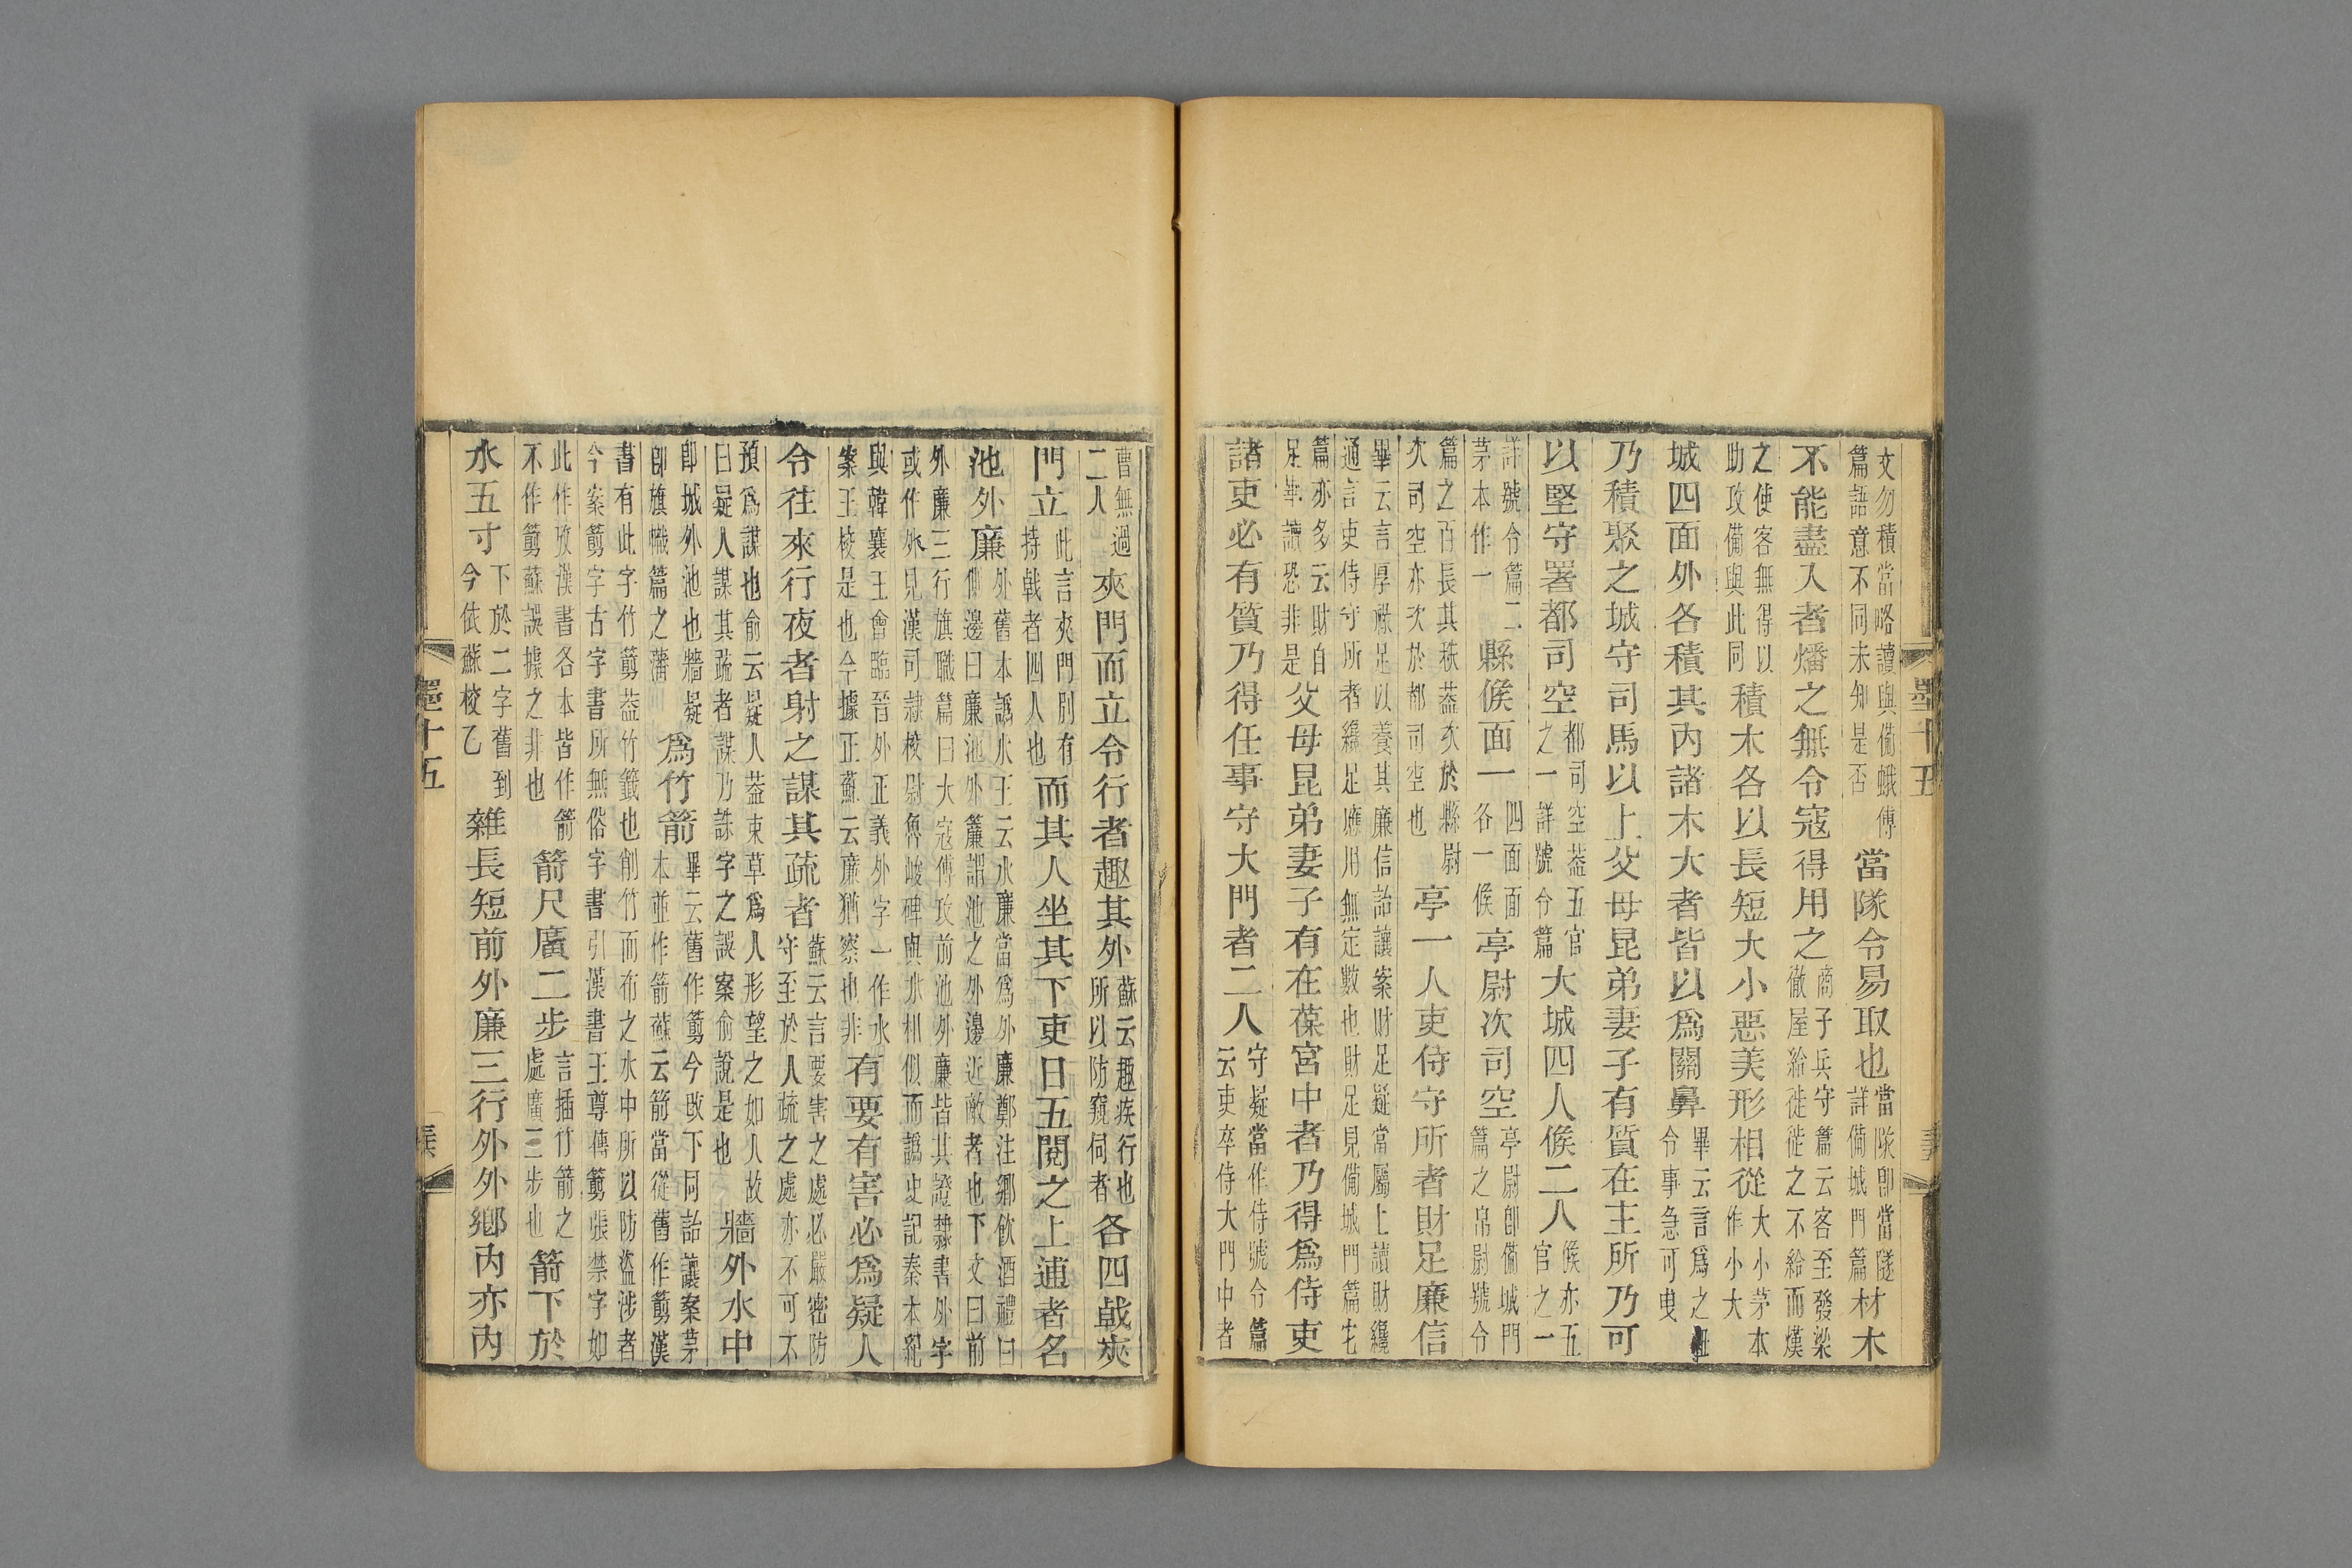 墨十五
文勿積當略讀與備蛾傅篇語意不同未知是否當隊令易取也當隊卽當隧詳備城門篇材木
不能盡入者燔之無令寇得用之商子兵守篇云客至發梁徹屋給徙徙之不給而熯
之使客無得以助攻備與此同積木各以長短大小惡美形相從大小茅本作小大
城四面外各積其內諸木大者皆以爲關鼻畢云言爲之紐令事急可曳
乃積聚之城守司馬以上父母昆弟妻子有質在主所乃可
以堅守署都司空都司空葢五官之一詳號令篇大城四人候二人候亦五官之一
詳號令篇二茅本作一縣候面一四面面各一候亭尉次司空亭尉卽備城門篇之帛尉號令
篇之百長其秩葢次於縣尉次司空亦次於都司空也亭一人吏侍守所者財足廉信
畢云言厚祿足以養其廉信詒讓案財足疑當屬上讀財纔通言吏侍守所者纔足應用無定數也財足見備城門篇它
篇亦多云財自足畢讀恐非是父母昆弟妻子有在葆宮中者乃得爲侍吏
諸吏必有質乃得任事守大門者二人守疑當作侍號令篇云吏卒侍大門中者
曹無過二人夾門而立令行者趣其外蘇云趣疾行也所以防窺伺者各四戟夾
門立此言夾門別有持戟者四人也而其人坐其下吏日五閱之上逋者名
池外廉外舊本譌水王云水廉當爲外廉鄭注鄉飲酒禮曰側邊曰廉池外簾謂池之外邊近敵者也下文曰前
外廉三行旗職篇曰大寇傅攻前池外廉皆其證隸書外字或作外見漢司隸校尉魯峻碑與水相似而譌史記秦本紀
與韓襄王會臨晉外正義外字一作水案王校是也今據正蘇云廉猶察也非有要有害必爲疑人
令往來行夜者射之謀其疏者蘇云言要害之處必嚴密防守至於人疏之處亦不可不
預爲謀也俞云疑人葢束草爲人形望之如人故曰疑人謀其疏者謀乃誅字之誤案俞說是也牆外水中
卽城外池也牆疑卽旗幟篇之藩爲竹箭畢云舊作䈁今改下同詒讓案茅本並作箭蘇云箭當從舊作䈁漢
書有此字竹䈁葢竹籤也削竹而布之水中所以防盜涉者今案䈁字古字書所無俗字書引漢書王尊傳䈁張禁字如
此作攷漢書各本皆作箭不作䈁蘇誤據之非也箭尺廣二步言插竹箭之處廣二步也箭下於
水五寸下於二字舊到今依蘇校乙雜長短前外廉三行外外鄉內亦內
墨十五